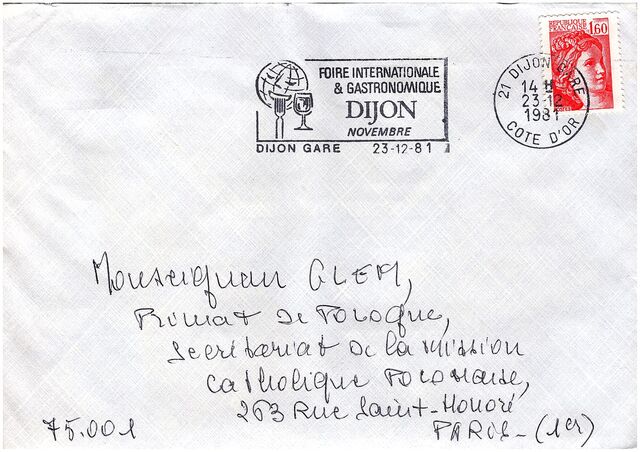 REPUBLIQUE
FRANÇAISE
1,60
FOIRE INTERNATIONALE
& GASTRONOMIQUE
DIJON
NOVEMBRE
DIJON GARE 23-12-81
21 DIJON GARE
14 H
23-12
1981
COTE D'OR
Monseigneur GLEM,
Primat de Pologne,
Secrétariat de la Mission
Catholique Polonaise,
263 Rue Saint-Honoré
75.001 PARIS - (1er)